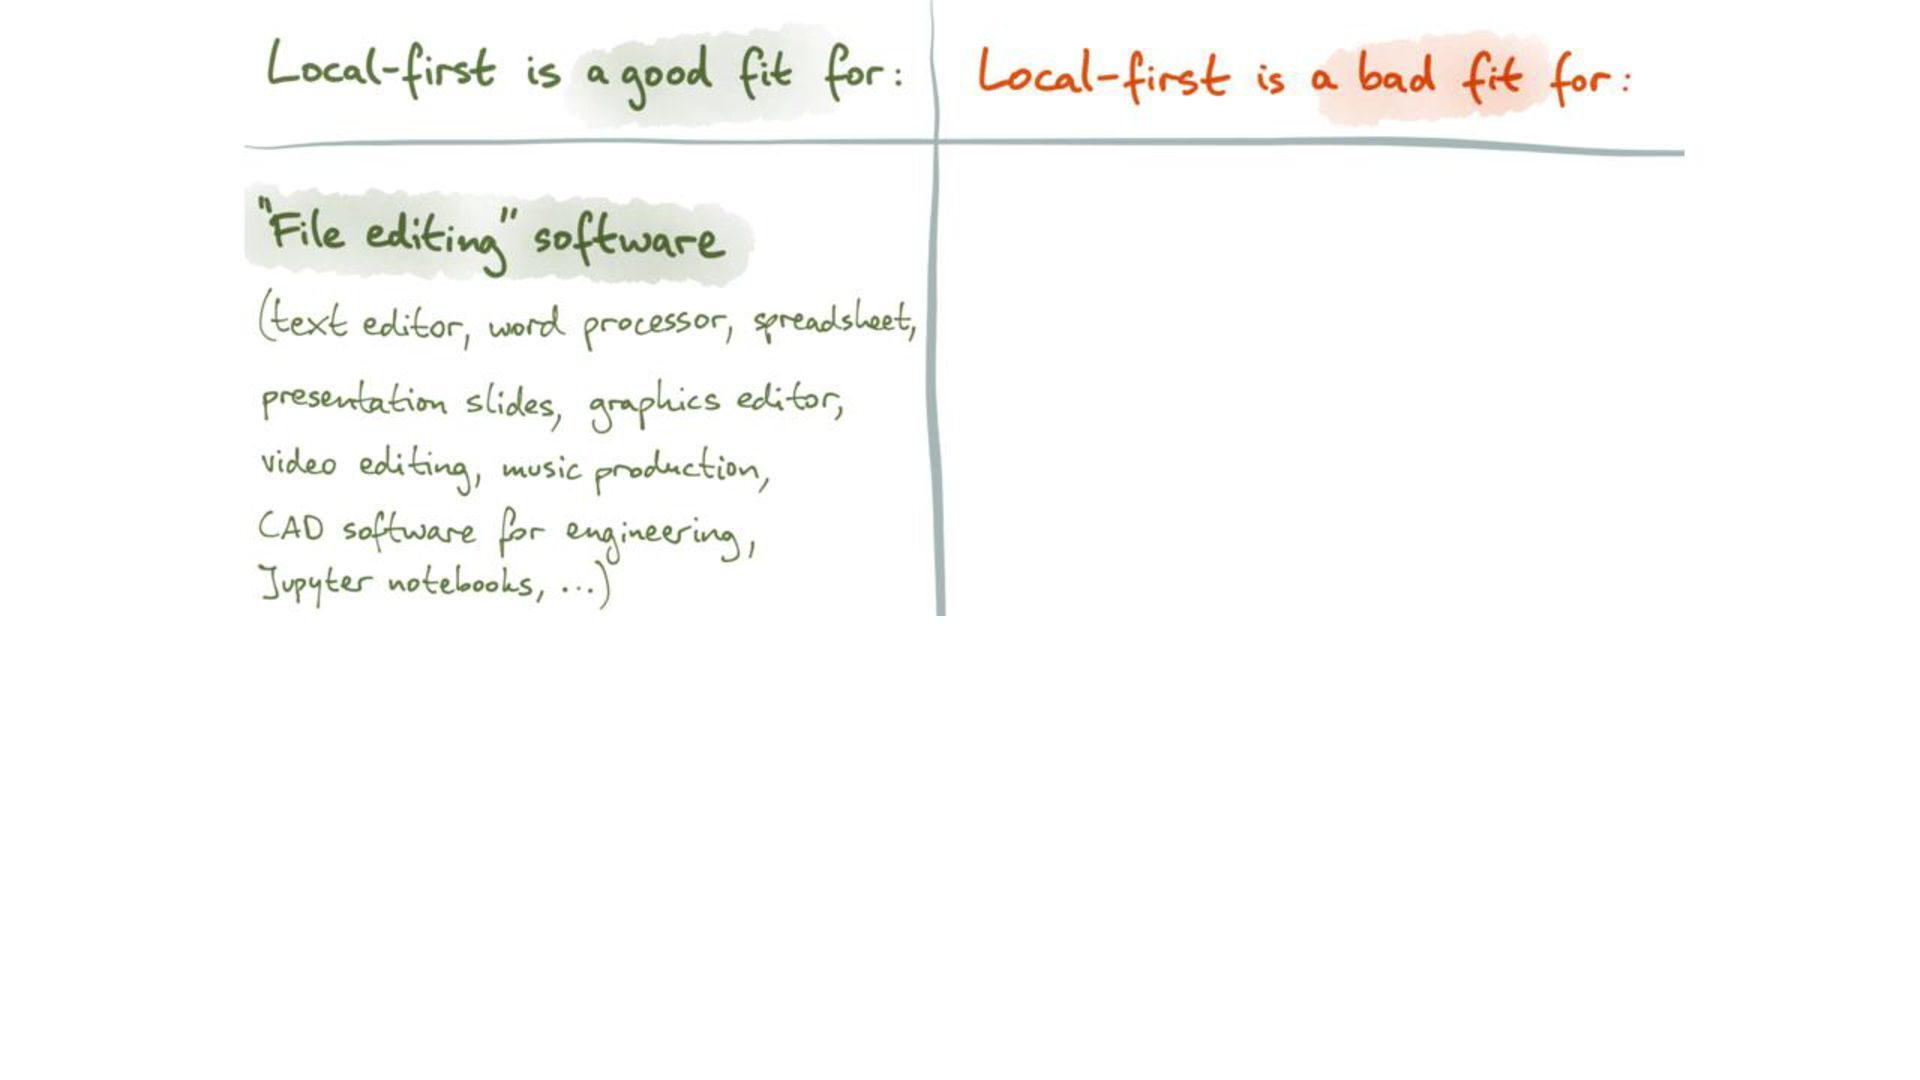 Local-first is a good fit for:
Local-first is a bad fit for:
"File editing" software
(text editor, word processor, spreadsheet,
presentation slides, graphics editor,
video editing, music production,
CAD software for engineering,
Jupyter notebooks, ...)